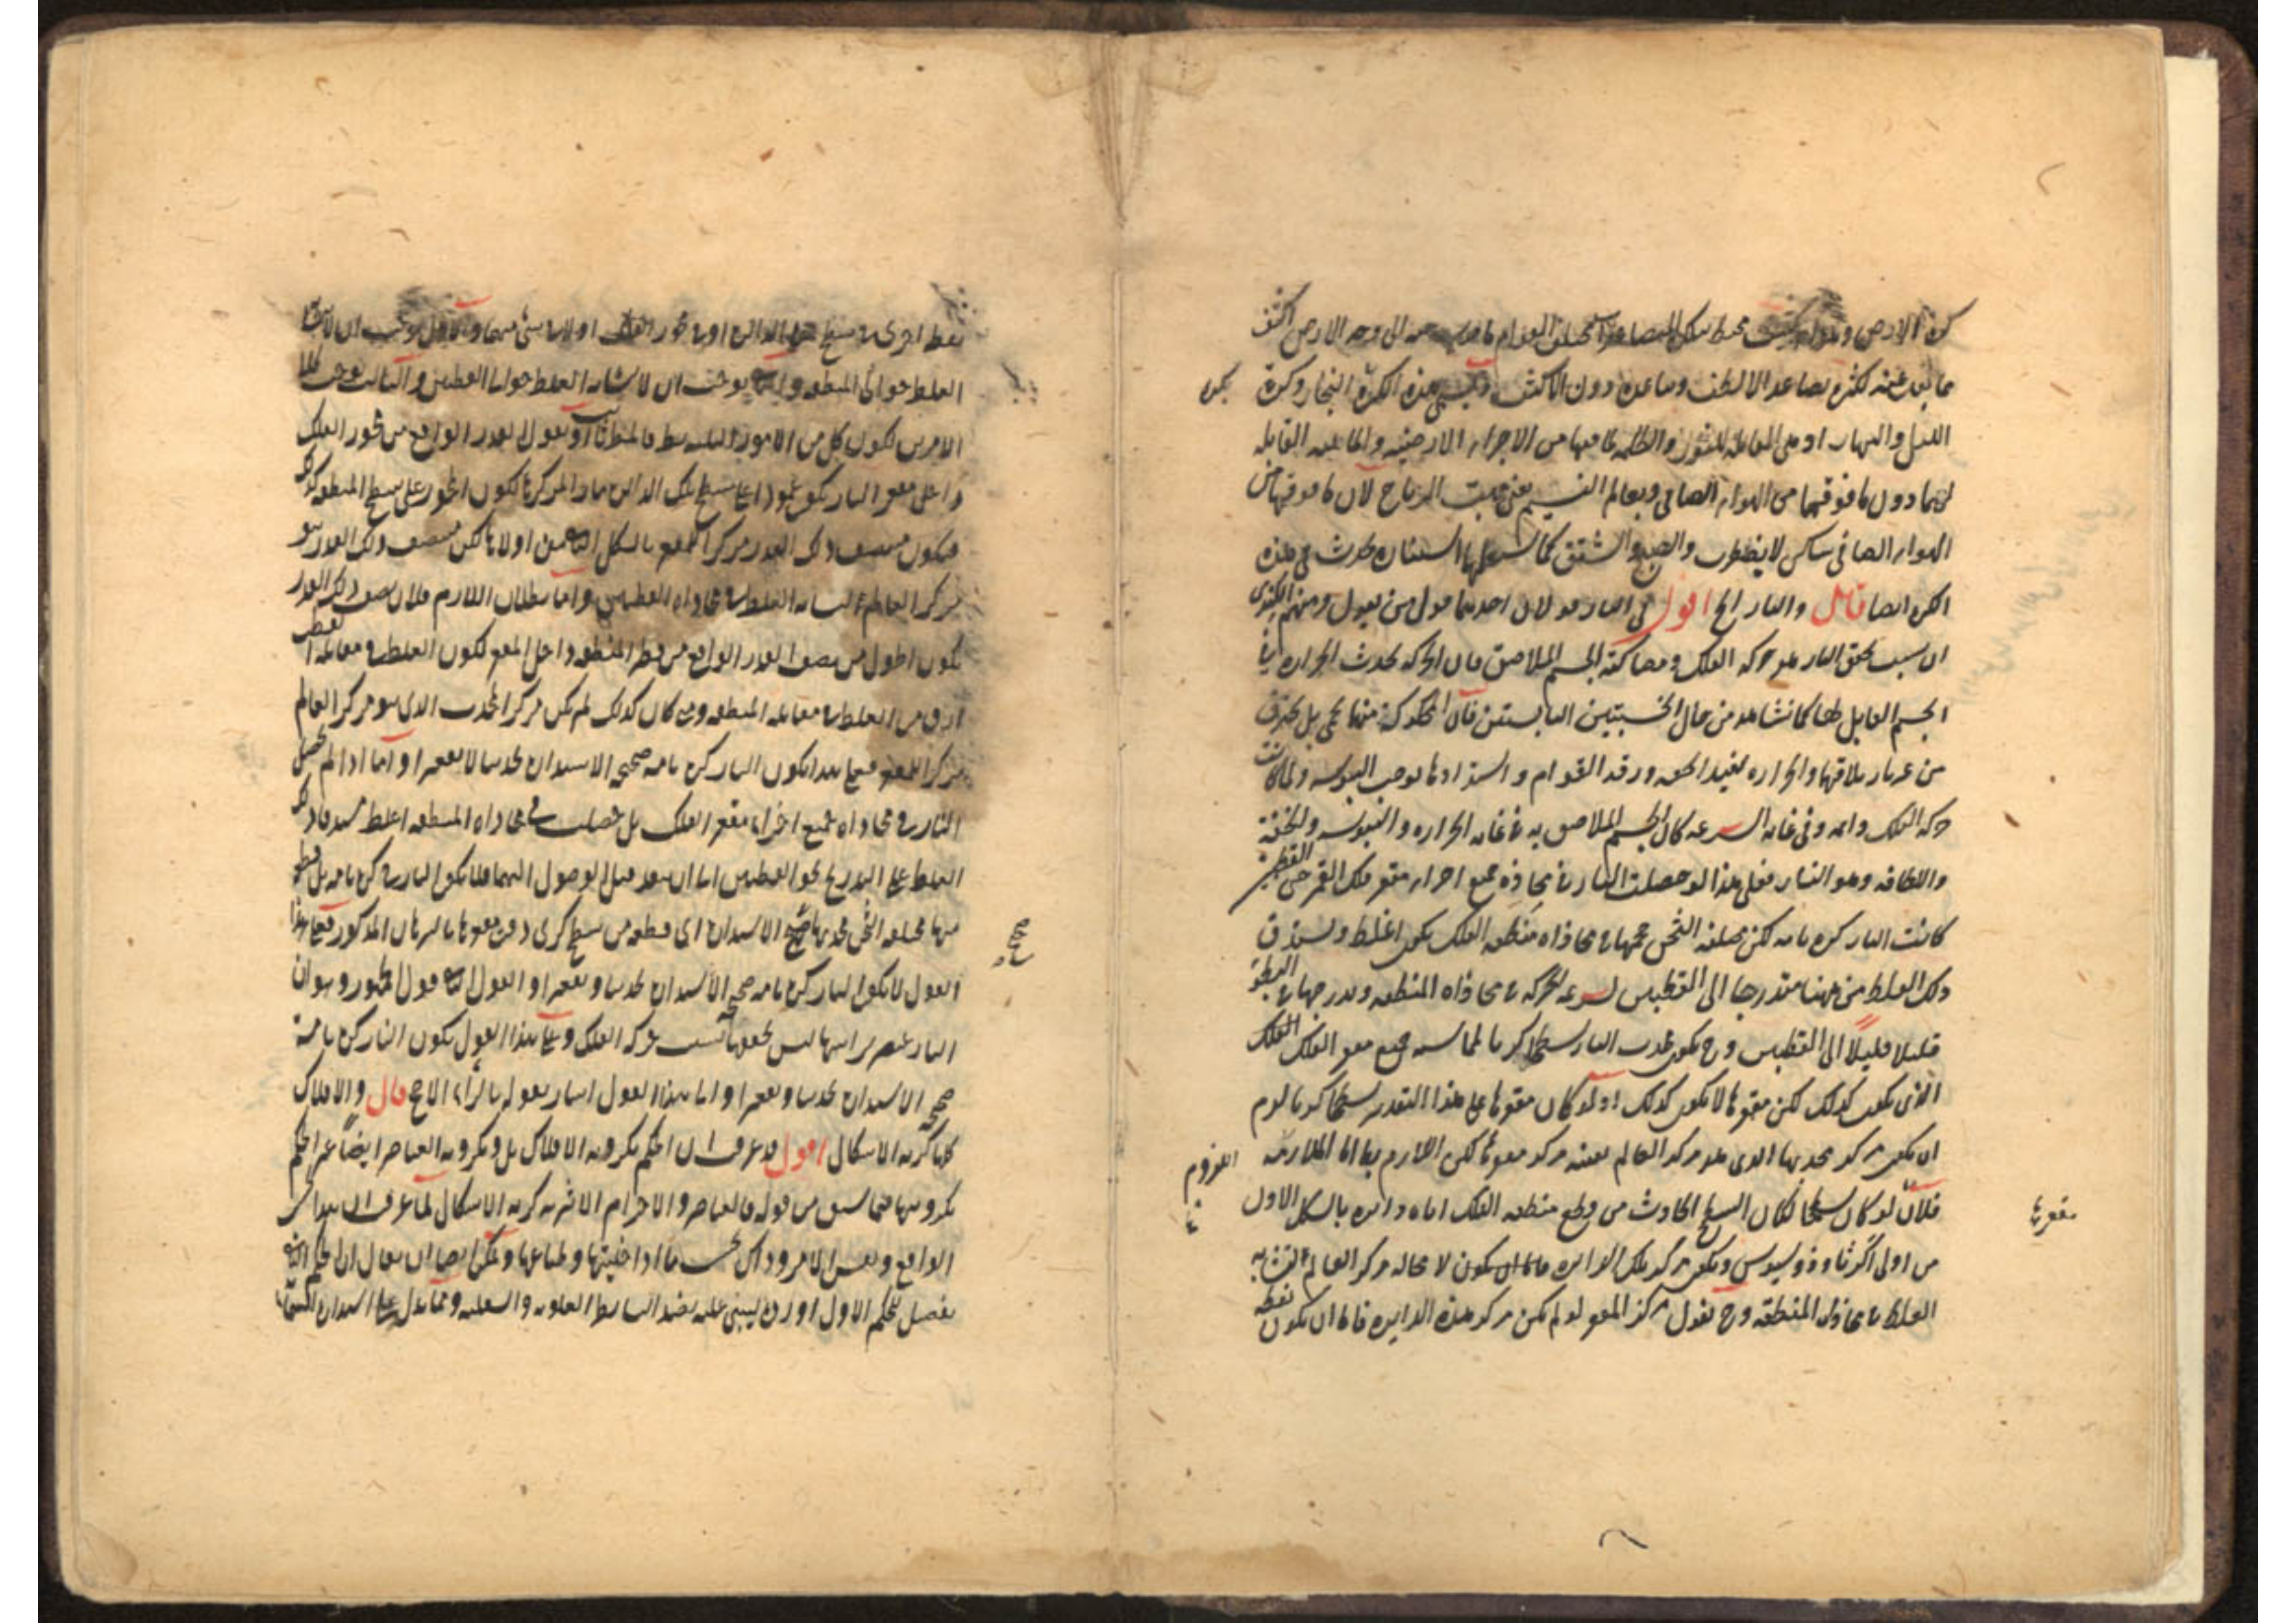 كرة الارض و محيط الى وجه الارض اكثف
مما بعد عنه لكثرة تصاعد الالطف وتباعده دون الاكثف وتسمى هذه الكرة البخار وكرة
الليل والنهار اذ هى القابلة للنور والظلمة لما فيها من الاجزاء الارضية والمائية القابلة
لهما دون ما فوقهما من الهواء الصافى وبعالم النسيم يعنى مهب الرياح لان ما فوقها من
الهواء الصافى ساكن لا يضطرب والصبح والشفق كما ستعلمها ان شاء الله يحدث فى هذه
الكرة ايضا قال والنار الخ اقول فى النار قولان احدهما قول من يقول ومنهم الكندى
ان سبب تحقق النار هو حركة الفلك ومصاكته الجسم الملاصق فان الحركة تحدث الحرارة فى
الجسم القابل لها كما نشاهد من حال الخشبتين اليابستين فان المحكوكة منهما تحمى بل تحترق
من غير نار تلاقيها والحرارة تفيد الخفة ورقة القوام واشتدادها يوجب اليبوسة ولما كانت
حركة الفلك دائمة وفى غاية السرعة كان الجسم الملاصق به فى غاية الحرارة واليبوسة والخفة
واللطافة وهو النار فعلى هذا لو حصلت النار فى محاذة جميع اجزاء مقعر فلك القمر حتى القطبين
كانت النار كرة تامة لكن مختلفة الثخن حجمها فى محاذاة منطقة الفلك يكون اغلظ ويستدق
ذلك الغلظ من هنا متدرجا الى القطبين لسرعة الحركة فى محاذاة المنطقة وتدرجها فى البطؤ
قليلا قليلا الى القطبين وح يكون محدب النار سطحا كريا لمماسته جميع مقعر الفلك
الذى يكون كذلك لكن مقعرها لا يكون كذلك اذ لو كان مقعرها على هذا التقدير سطحا كريا لزم
ان يكون مركز محدبها الذى هو مركز العالم بعينه مركز مقعرها لكن اللازم بط اما الملازمة
فلانه لو كان سطحا لكان السطح الحادث من قطع منطقة الفلك اياه دائرة بالشكل الاول
من اولى اكر ثاوذوسيوس ويكون مركز تلك الدائرة لا محالة مركز العالم لتشابه
الغلظ فى محاذاة المنطقة وح نقول مركز المقعر لو لم يكن مركز هذه الدائرة فاما ان يكون نقطة
يكن
اللزوم
مقعرها
نقطة اخرى فى سطح هذه الدائرة او فى محور الفلك او لا فى شئ منهما والاول يوجب ان لا يتشابه
الغلظ حوالى المنطقة والثانى يوجب ان لا يتشابه الغلظ حوالى القطبين والثالث يوجب كلا
الامرين لكون كل من الامور الثلثة بط فالمط ثابت او نقول القدر الواقع من محور الفلك
داخل مقعر النار يكون عمودا على سطح تلك الدائرة مارا بمركزها لكون المحور على سطح المنطقة كذلك
فيكون منتصف ذلك القدر مركز المقعر بالشكل من اولاها لكن منتصف ذلك القدر هو
مركز العالم لتشابه الغلظ فى محاذاة القطبين واما بطلان اللازم فلان نصف ذلك القدر
يكون اطول من نصف القدر الواقع من قطر المنطقة داخل المقعر لكون الغلظ فى مقابلة القطب
ادق من الغلظ فى مقابلة المنطقة ومتى كان كذلك لم يكن مركز المحدب الذى هو مركز العالم
مركز المقعر فعلى هذا يكون النار كرة تامة صحيح الاستدارة تحديبا لا تقعيرا واما اذا لم يحصل
النار فى محاذاة جميع اجزاء مقعر الفلك بل حصلت فى محاذاة المنطقة اغلظ ذلك
الغلظ على التدريج نحو القطبين الى ان ينفد قبل الوصول اليهما فلا يكون النار كرة تامة بل قطعة
منها مختلفة الثخن محدبها صحيح الاستدارة اى قطعة من سطح كرى دون مقعرها بالبرهان المذكور فعلى هذا
القول لا يكون النار كرة تامة صحيح الاستدارة تحديبا وتقعيرا والقول الثانى قول الجمهور وهو ان
النار عنصر براسها ليس تحققها بسبب حركة الفلك وعلى هذا القول يكون النار كرة تامة
صحيح الاستدارة تحديبا وتقعيرا والى هذا القول اشار بقوله بالراى الاصح قال والافلاك
كلها كرية الاشكال اقول قد عرفت ان الحكم بكروية الافلاك بل وبكروية العناصر ايضا غير الحكم
بكرويتها فيما سبق من قوله فالعناصر والاجرام الاثيرية كرية الاشكال لما عرفت ان هذا
الواقع ونفس الامر وذاك بحسب ما اذا خليتها وطباعها ويمكن ايضا ان يقال ان الحكم الثانى
تفصيل للحكم الاول اورده ليبتنى عليه نضد البسائط العلوية والسفلية ومما يدل على استدارة السماء
صحيح